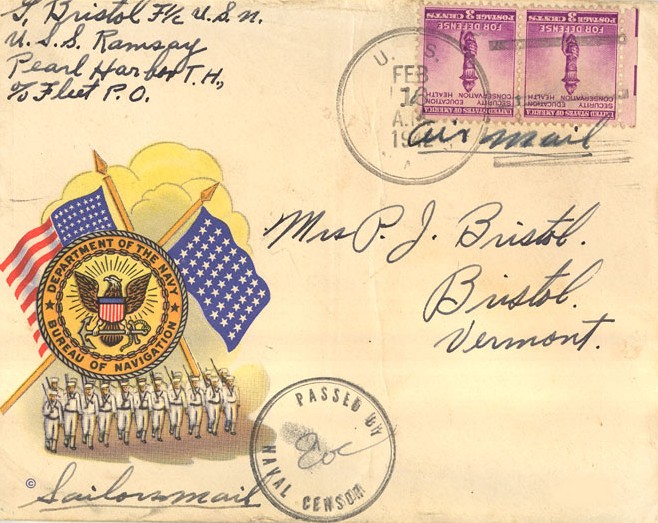 T, Bristol F/c U.S.n.
U.S.S. Ramsay
Pearl Harbor T.H.,
c/o Fleet P.O.
U. S.
FEB
A.M
POSTAGE 3 CENTS
FOR DEFENSE
SECURITY
EDUCATION
CONSERVATION
HEALTH
UNITED STATES OF AMERICA
POSTAGE 3 CENTS
FOR DEFENSE
SECURITY
EDUCATION
CONSERVATION
HEALTH
UNITED STATES OF AMERICA
Air Mail
Mrs P. J. Bristol.
Bristol.
Vermont.
DEPARTMENT OF THE NAVY
BUREAU OF NAVIGATION
PASSED BY
NAVAL CENSOR
©
Sailorsmail